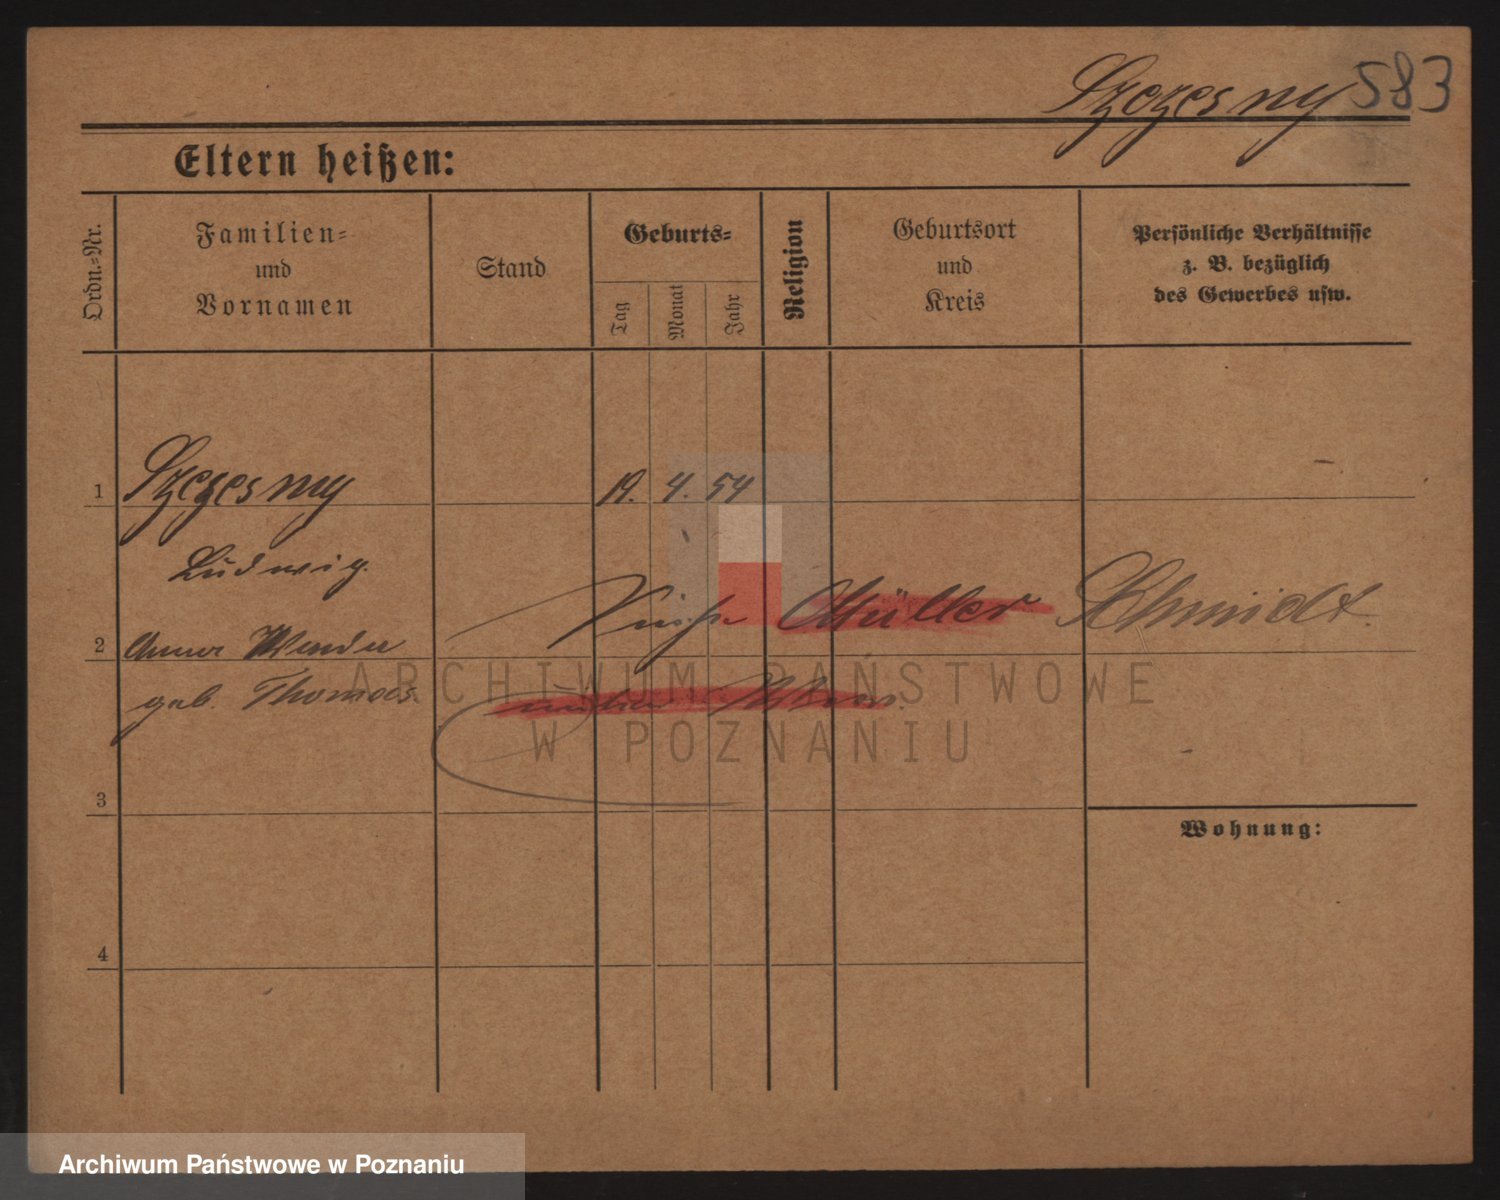 Szczesny 583
Eltern heißen:
Ordn.-Nr.
Familien-
und
Vornamen
Stand
Geburts-
Tag
Monat
Jahr
Religion
Geburtsort
und
Kreis
Persönliche Verhältnisse
z. B. bezüglich
des Gewerbes usw.
1 Szczesny 19. 4. 54
Ludwig.
Siehe Müller Schmidt.
2 Anna
geb. Thomas.
ARCHIWUM PAŃSTWOWE
W POZNANIU
3
Wohnung:
4
Archiwum Państwowe w Poznaniu